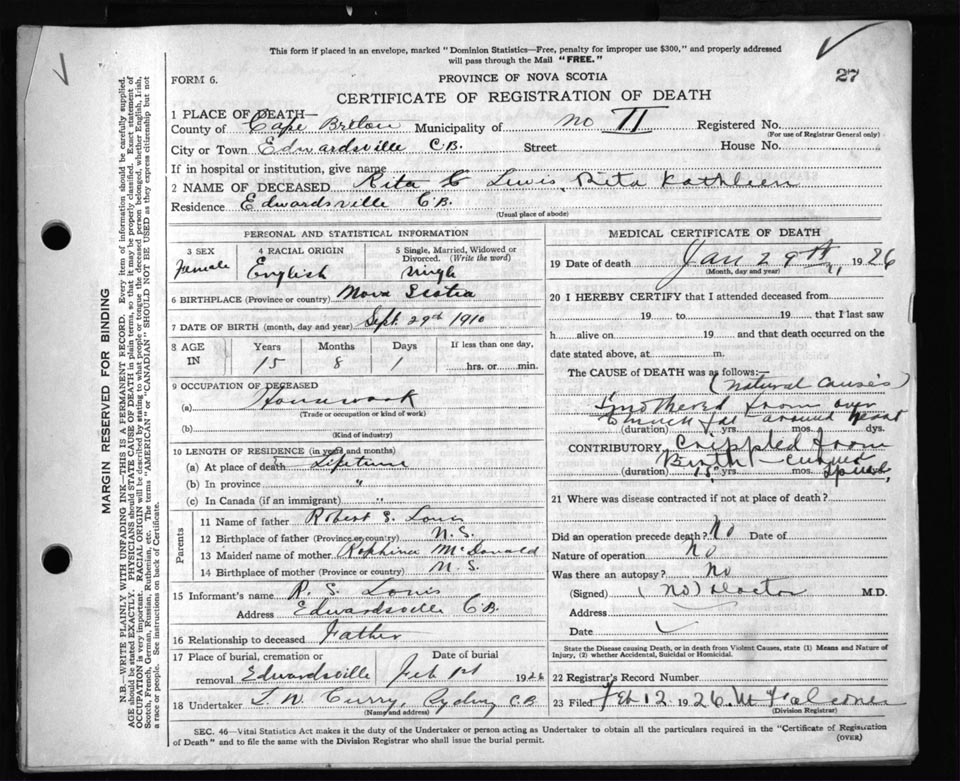 This form if placed in an envelope, marked "Dominion Statistics—Free, penalty for improper use $300," and properly addressed
will pass through the Mail "FREE."
27
FORM 6.
PROVINCE OF NOVA SCOTIA
CERTIFICATE OF REGISTRATION OF DEATH
1 PLACE OF DEATH—
County of Cape Breton Municipality of no II Registered No.
(For use of Registrar General only)
City or Town Edwardsville C.B. Street House No.
If in hospital or institution, give name
2 NAME OF DECEASED Rita K Lewis, Rita Kathleen
Residence Edwardsville C.B.
(Usual place of abode)
PERSONAL AND STATISTICAL INFORMATION
3 SEX 4 RACIAL ORIGIN 5 Single, Married, Widowed or Divorced. (Write the word)
Female English Single
6 BIRTHPLACE (Province or country) Nova Scotia
7 DATE OF BIRTH (month, day and year) Sept. 29th 1910
8 AGE IN Years Months Days If less than one day,
15 8 1 hrs. or min.
9 OCCUPATION OF DECEASED
(a) Housework
(Trade or occupation or kind of work)
(b)
(Kind of industry)
10 LENGTH OF RESIDENCE (in years and months)
(a) At place of death Lifetime
(b) In province "
(c) In Canada (if an immigrant) "
Parents
11 Name of father Robert S. Louis
12 Birthplace of father (Province or country) N.S.
13 Maiden name of mother McDonald
14 Birthplace of mother (Province or country) N.S.
15 Informant's name R. S. Louis
Address Edwardsville C.B.
16 Relationship to deceased Father
17 Place of burial, cremation or Date of burial
removal Edwardsville Feb 1st 1926
18 Undertaker T. W. Curry, Sydney C.B.
(Name and address)
MEDICAL CERTIFICATE OF DEATH
19 Date of death Jan 29th, 1926
(Month, day and year)
20 I HEREBY CERTIFY that I attended deceased from
19 to 19 that I last saw
h alive on 19 and that death occurred on the
date stated above, at m.
The CAUSE of DEATH was as follows:—
(Natural Causes)
Smothered from over
to much fat around heart
(duration) yrs. mos. dys.
CONTRIBUTORY Crippled from
Birth - curved
(duration) 15 yrs. mos. Spine,
21 Where was disease contracted if not at place of death?
Did an operation precede death? No Date of
Nature of operation No
Was there an autopsy? No
(Signed) (No) Doctor M.D.
Address
Date
State the Disease causing Death, or in death from Violent Causes, state (1) Means and Nature of
Injury, (2) whether Accidental, Suicidal or Homicidal.
22 Registrar's Record Number
23 Filed Feb 12, 1926.
(Division Registrar)
SEC. 46—Vital Statistics Act makes it the duty of the Undertaker or person acting as Undertaker to obtain all the particulars required in the "Certificate of Registration
of Death" and to file the same with the Division Registrar who shall issue the burial permit.
(OVER)
MARGIN RESERVED FOR BINDING
N.B.—WRITE PLAINLY WITH UNFADING INK—THIS IS A PERMANENT RECORD. Every item of information should be carefully supplied.
AGE should be stated EXACTLY. PHYSICIANS should STATE CAUSE OF DEATH in plain terms, so that it may be properly classified. Exact statement of
OCCUPATION is very important. RACIAL ORIGIN will be described by stating to what people or tongue the deceased person belonged, whether English, Irish,
Scotch, French, German, Russian, Ruthenian, etc. The terms "AMERICAN" or "CANADIAN" SHOULD NOT BE USED as they express citizenship but not
a race or people. See instructions on back of Certificate.